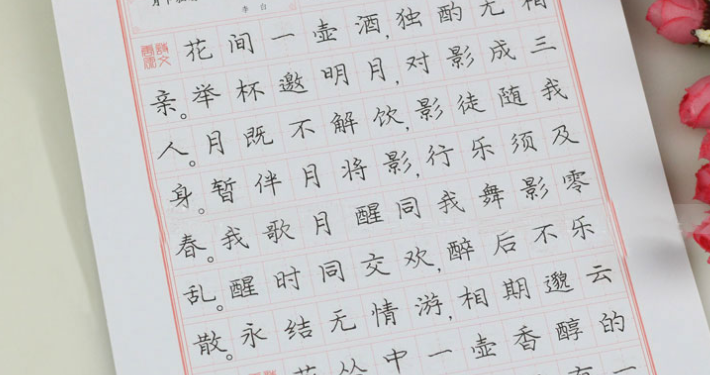 李白
花间一壶酒,独酌无相
亲。举杯邀明月,对影成三
人。月既不解饮,影徒随我
身。暂伴月将影,行乐须及
春。我歌月醒同我舞影零
乱。醒时同交欢,醉后不乐
散。永结无情游,相期邈云
花丛中一壶香醇的